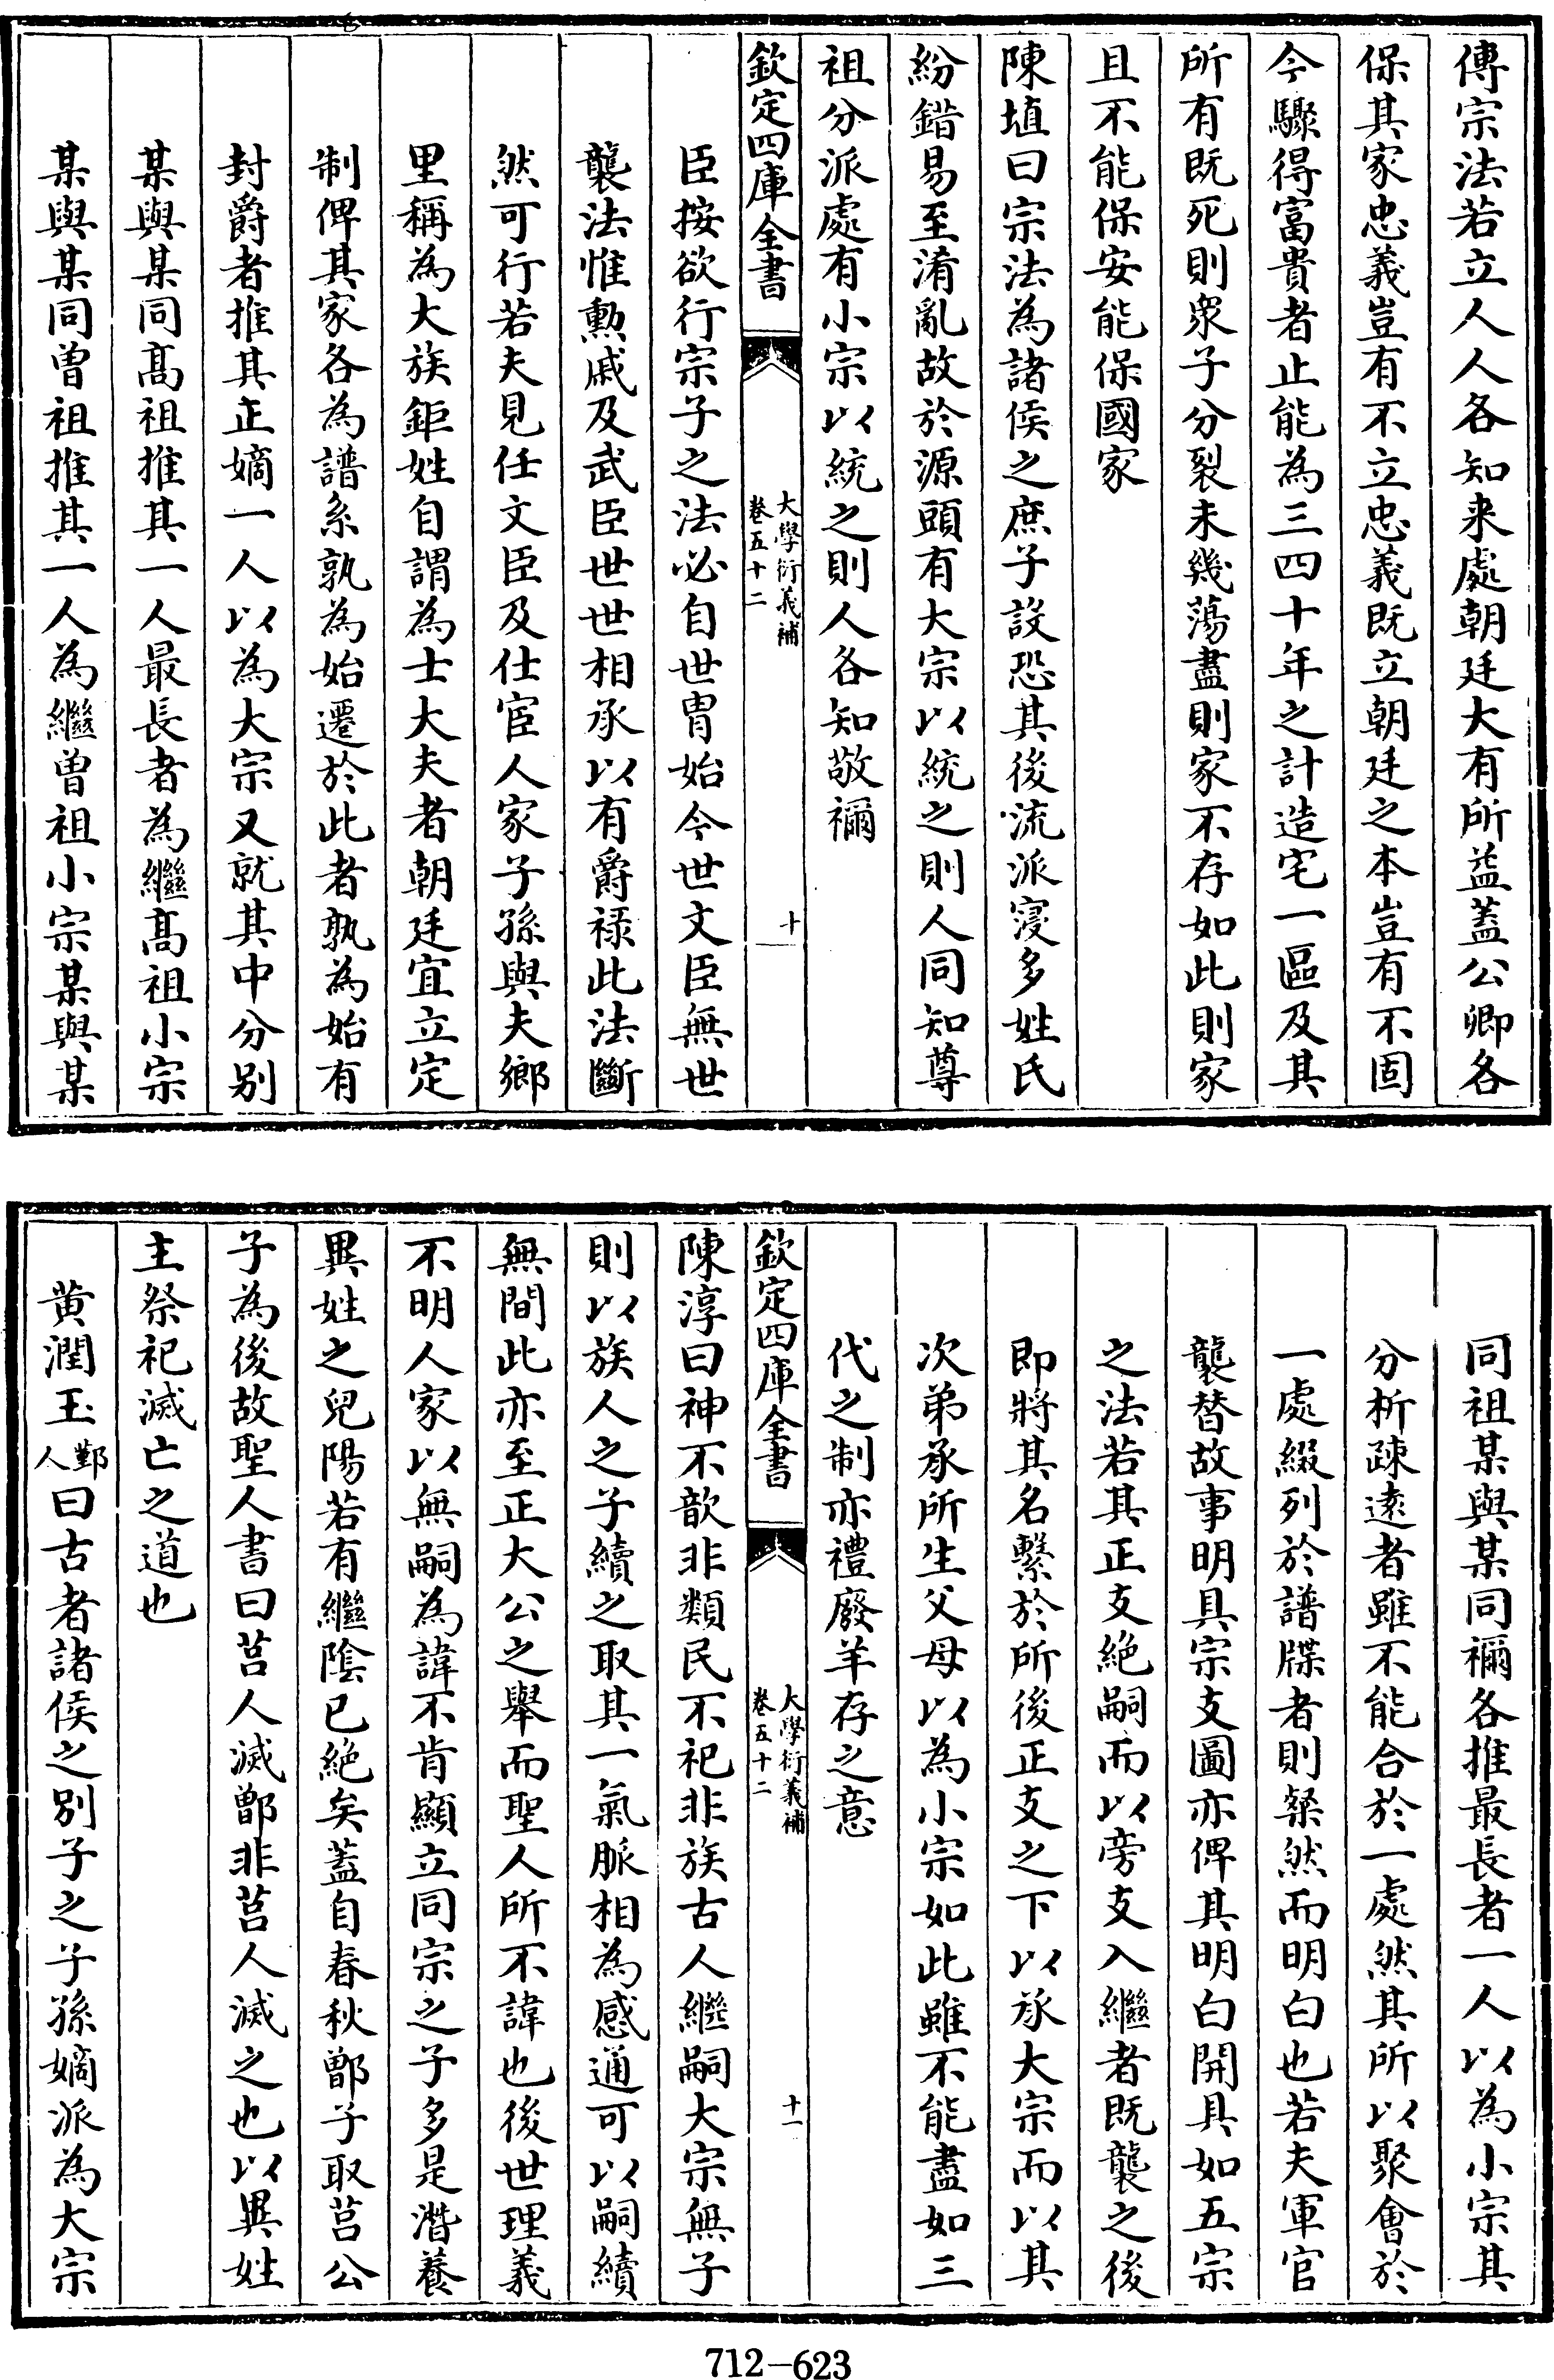 傳宗法若立人人各知来處朝廷大有所益蓋公卿各
保其家忠義豈有不立忠義既立朝廷之本豈有不固
今驟得富貴者止能為三四十年之計造宅一區及其
所有既死則衆子分裂未幾蕩盡則家不存如此則家
且不能保安能保國家
陳埴曰宗法為諸侯之庶子設恐其後流派寖多姓氏
紛錯易至淆亂故於源頭有大宗以統之則人同知尊
祖分派處有小宗以統之則人各知敬禰
欽定四庫全書
大學衍義補
卷五十二
十
臣按欲行宗子之法必自世胄始今世文臣無世
襲法惟勲戚及武臣世世相承以有爵禄此法斷
然可行若夫見任文臣及仕宦人家子孫與夫鄉
里稱為大族鉅姓自謂為士大夫者朝廷宜立定
制俾其家各為譜系孰為始遷於此者孰為始有
封爵者推其正嫡一人以為大宗又就其中分别
某與某同髙祖推其一人最長者為繼髙祖小宗
某與某同曽祖推其一人為繼曽祖小宗某與某
同祖某與某同禰各推最長者一人以為小宗其
分析疎逺者雖不能合於一處然其所以聚會於
一處綴列於譜牒者則粲然而明白也若夫軍官
襲替故事明具宗支圖亦俾其明白開具如五宗
之法若其正支絶嗣而以旁支入繼者既襲之後
即將其名繫於所後正支之下以承大宗而以其
次弟承所生父母以為小宗如此雖不能盡如三
代之制亦禮廢羊存之意
欽定四庫全書
大學衍義補
卷五十二
十一
陳淳曰神不歆非類民不祀非族古人繼嗣大宗無子
則以族人之子續之取其一氣脈相為感通可以嗣續
無間此亦至正大公之舉而聖人所不諱也後世理義
不明人家以無嗣為諱不肯顯立同宗之子多是濳養
異姓之兒陽若有繼隂已絶矣蓋自春秋鄫子取莒公
子為後故聖人書曰莒人滅鄫非莒人滅之也以異姓
主祭祀滅亡之道也
黄潤玉鄞人曰古者諸侯之別子之子孫嫡派為大宗
712-623